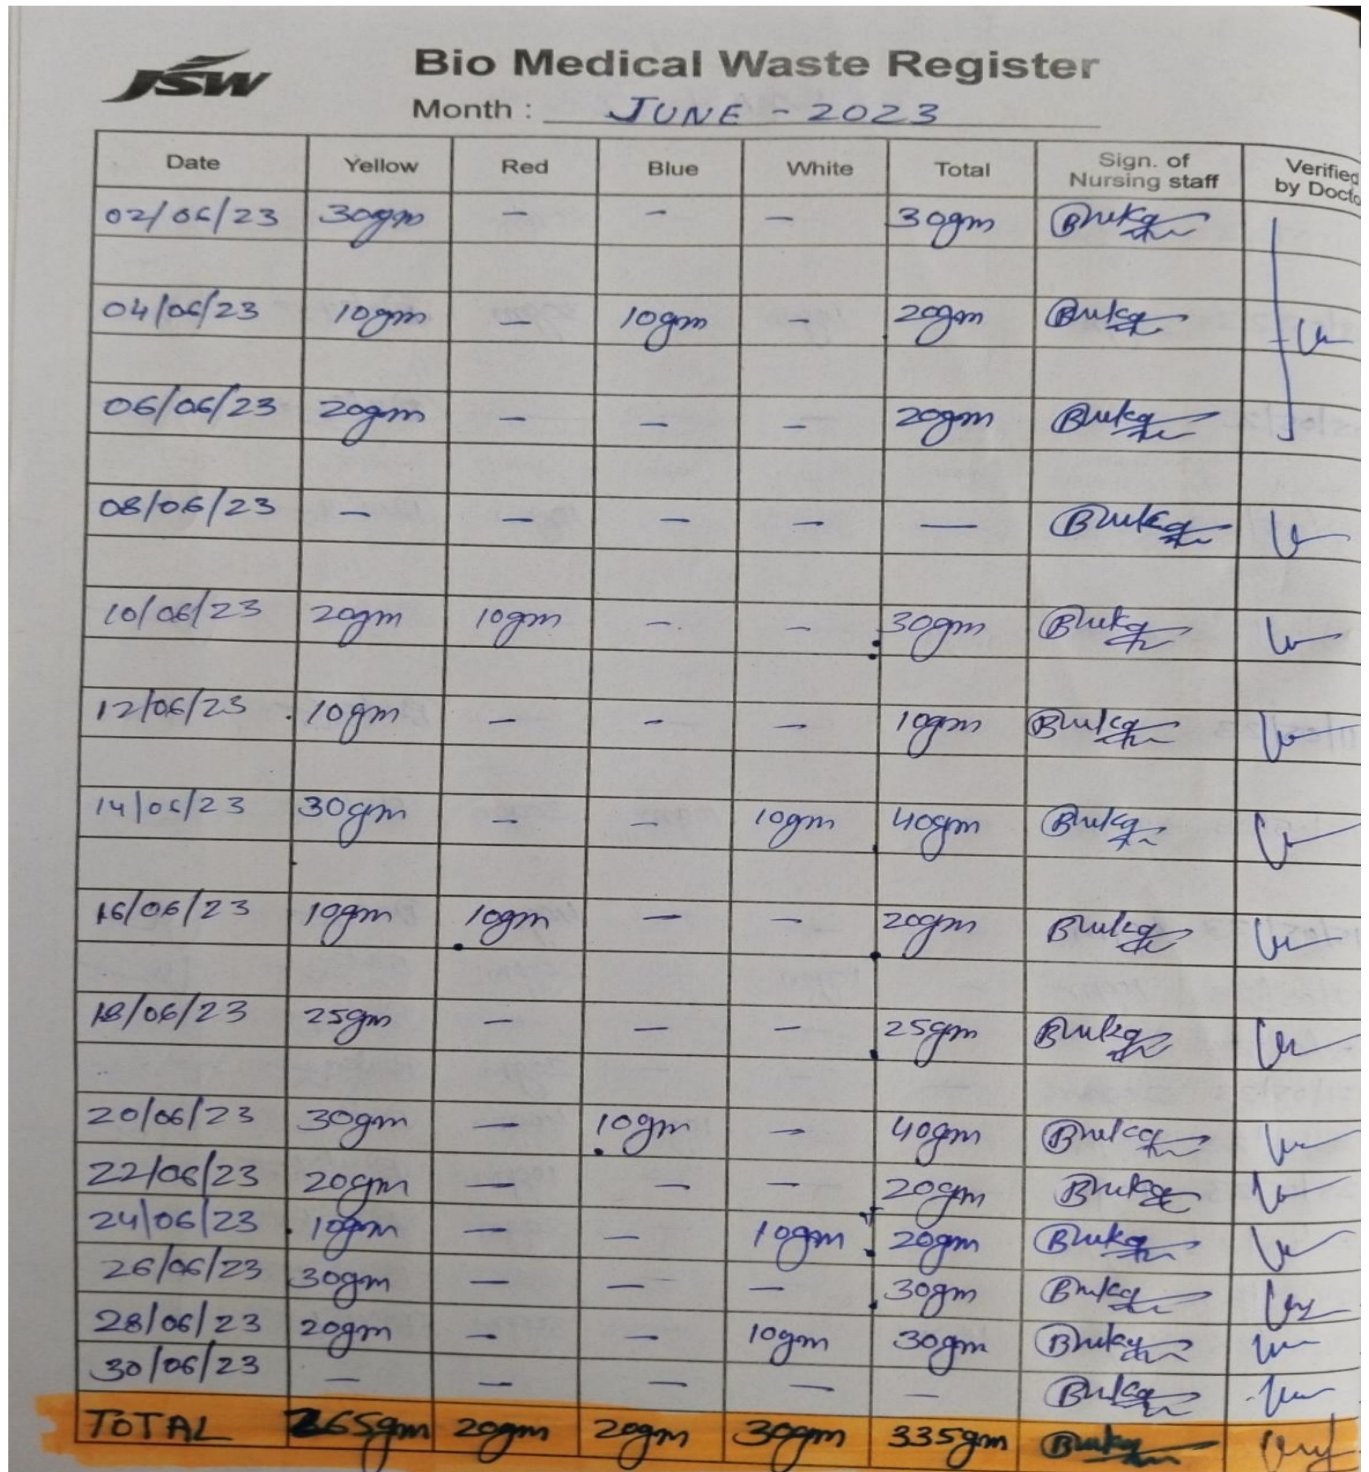 JSW
Bio Medical Waste Register
Month : JUNE - 2023
Date Yellow Red Blue White Total Sign. of Nursing staff Verified by Docto
02/06/23 30gm - - - 30gm
04/06/23 10gm - 10gm - 20gm
06/06/23 20gm - - - 20gm
08/06/23 - - - - -
10/06/23 20gm 10gm - - 30gm
12/06/23 10gm - - - 10gm
14/06/23 30gm - - 10gm 40gm
16/06/23 10gm 10gm - - 20gm
18/06/23 25gm - - - 25gm
20/06/23 30gm - 10gm - 40gm
22/06/23 20gm - - - 20gm
24/06/23 10gm - - 10gm 20gm
26/06/23 30gm - - - 30gm
28/06/23 20gm - - 10gm 30gm
30/06/23 - - - - -
TOTAL 265gm 20gm 20gm 30gm 335gm